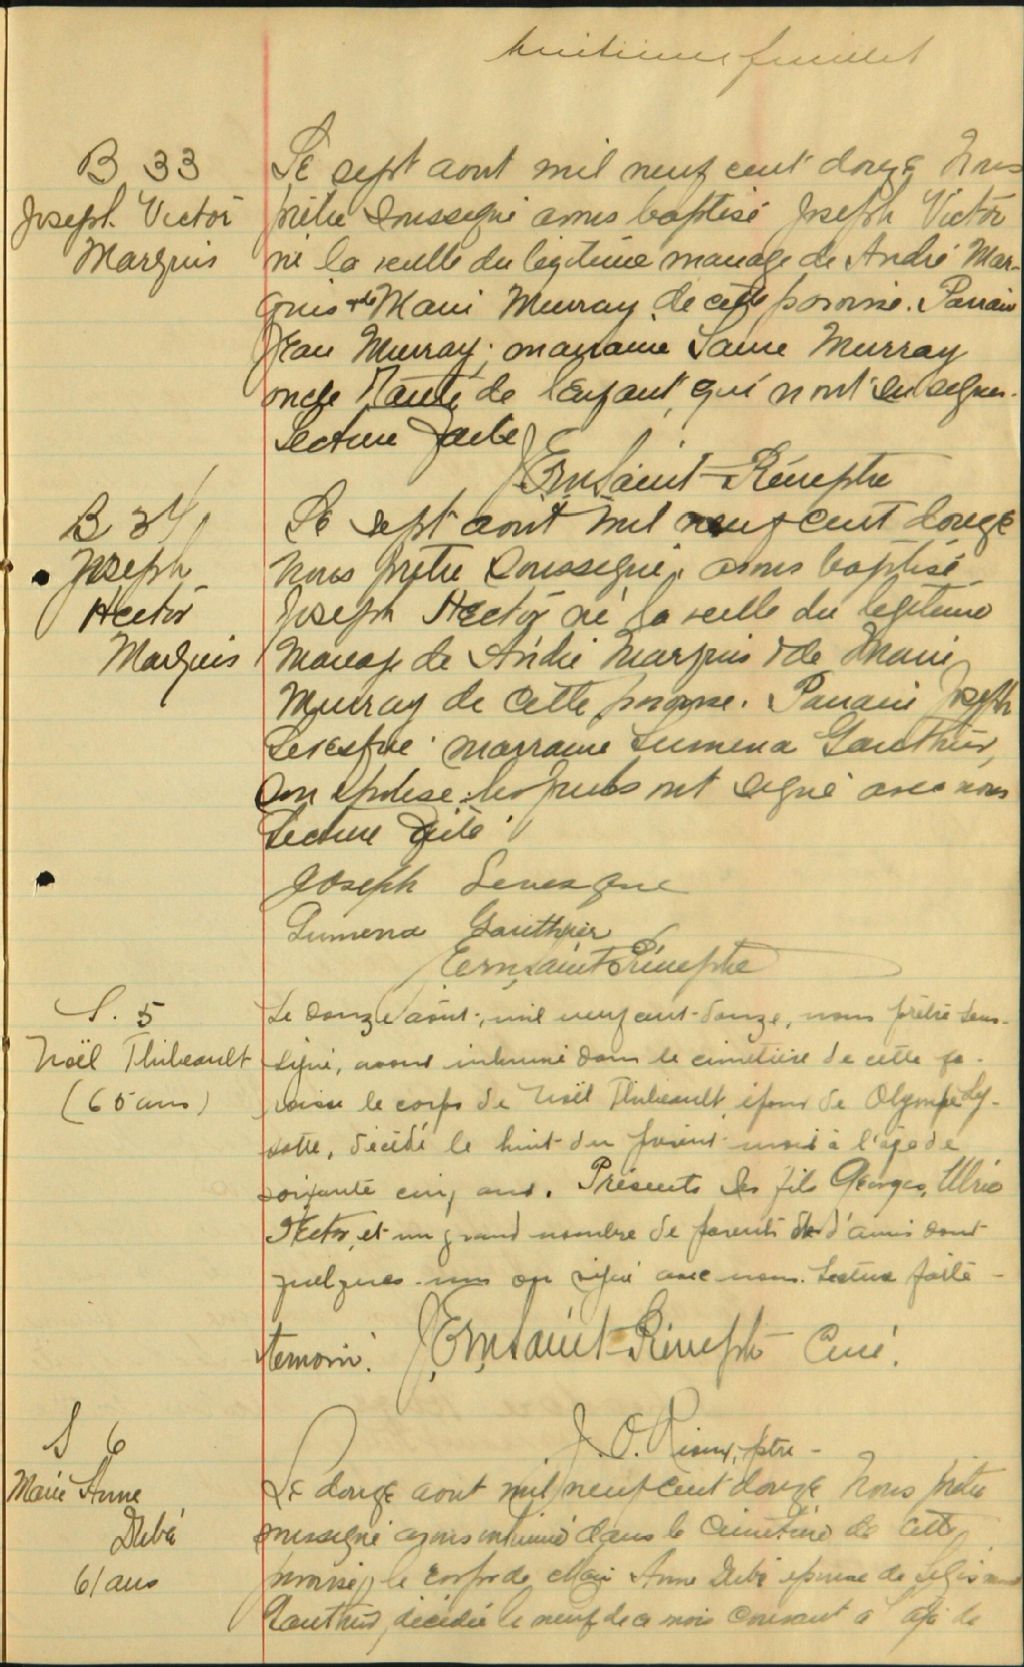 huitième feuillet
B 33
Joseph Victor
Marquis
Le sept aout mil neuf cent douze Nous
prêtre soussigné avons baptisé Joseph Victor
né la veille du légitime mariage de André Mar-
quis & de Marie Murray de cette paroisse. Parrain
Jean Murray; marraine Murray
oncle & tante de l'enfant qui n'ont su signer.
Lecture faite
J. Ern Saint-
B 34
Joseph
Hector
Marquis
Le sept août mil neuf cent douze
Nous prêtre soussigné, avons baptisé
Joseph Hector né la veille du légitime
mariage de André Marquis & de Marie
Murray de cette paroisse. Parrain Joseph
Levesque marraine Lumena Gauthier,
son épouse lesquels ont signé avec nous
Lecture faite
Joseph Levesque
Lumena Gauthier
J. Ern Saint
S. 5
Noël Thibeault
(65 ans)
Le douze août, mil neuf cent-douze, nous prêtre sous-
signé, avons inhumé dans le cimetière de cette pa-
roisse le corps de Noël Thibeault, époux de Olympe
décédé le huit du présent mois à l'âge de
soixante cinq ans. Présents les fils Georges, Ulric
Hector, et un grand nombre de parents & d'amis dont
quelques-uns on signé avec nous. Lecture faite -
témoin. J. Ern Saint- Curé.
J. O. Rioux, ptre -
S 6
Marie Anne
Dubé
61 ans
Le douze aout mil neuf cent douze Nous prêtre
soussigné avons inhumé dans le cimetière de cette
paroisse, le corps de Marie Anne Dubé épouse de
Gauthier, décédée le neuf de ce mois courant à l'âge de